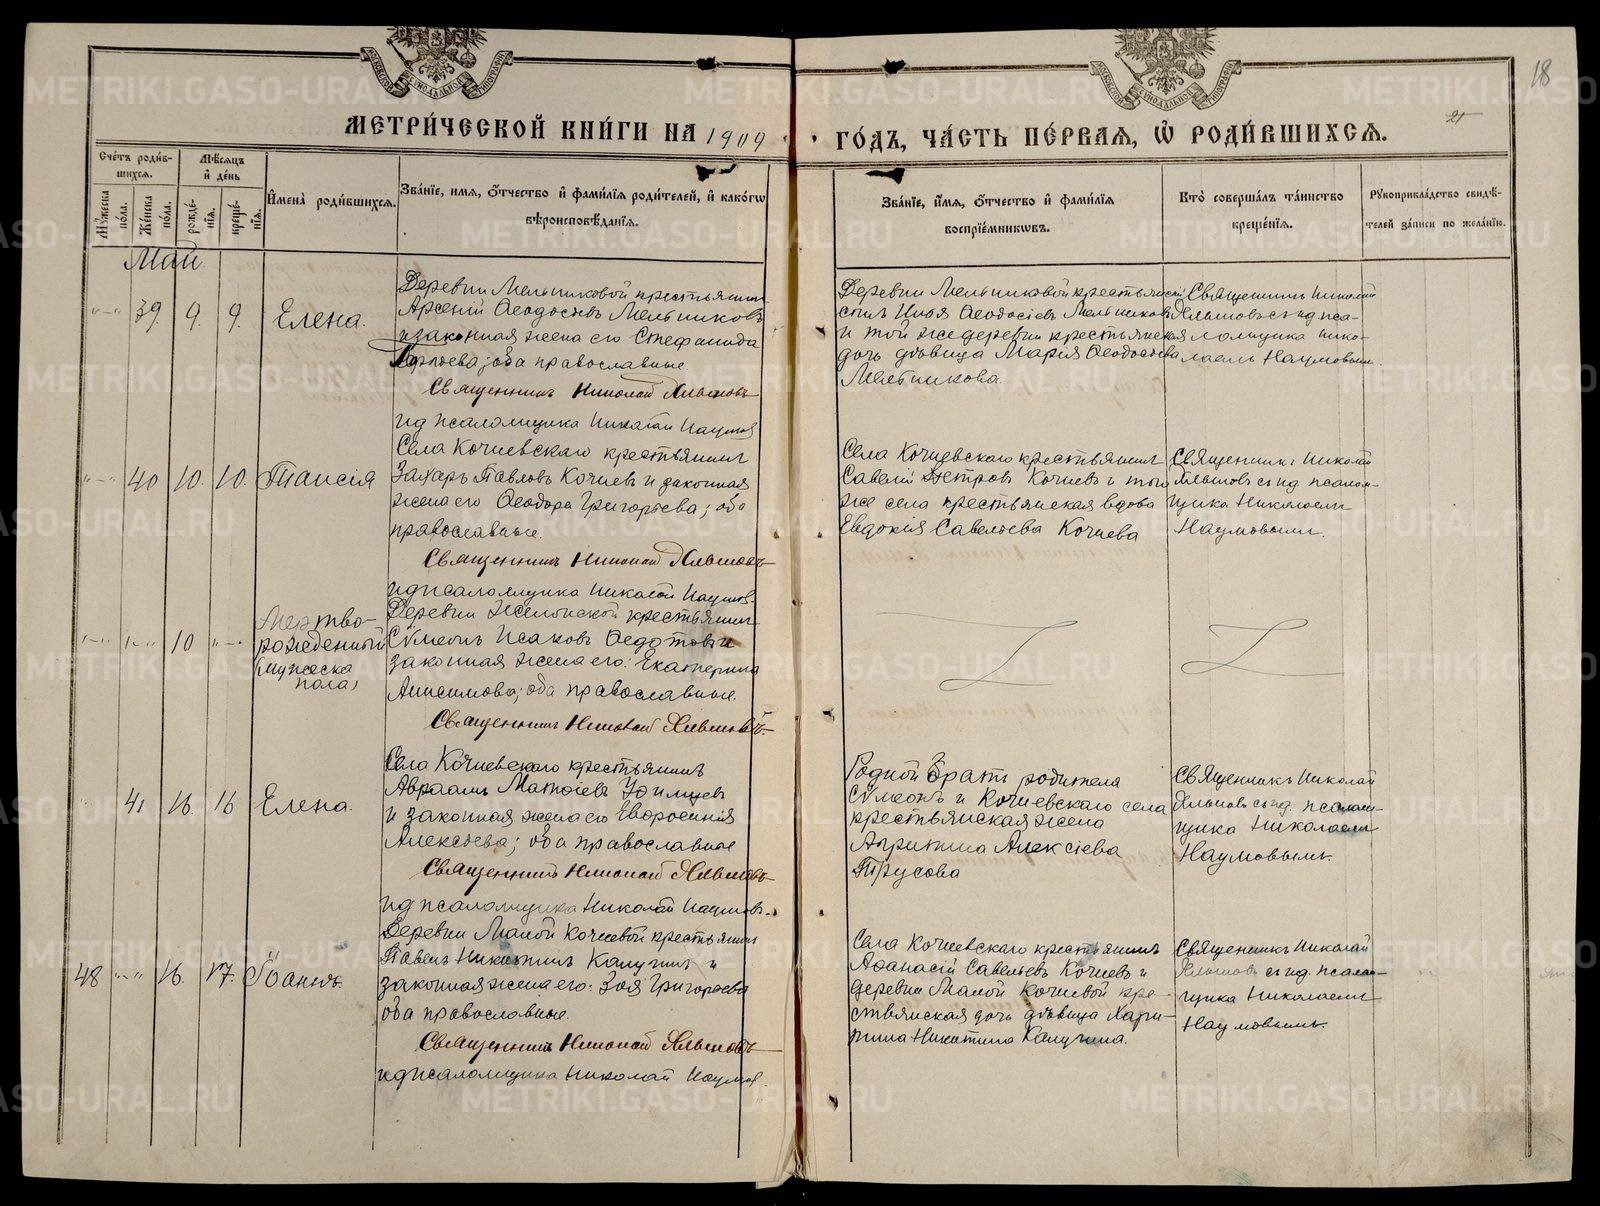 18
21
МЕТРИ́ЧЕСКОЙ КНИ́ГИ НА 1909
ГО́ДЪ, ЧА́СТЬ ПЕ́РВАЯ, Ѡ РОДИ́ВШИХСЯ.
Счетъ родив-
шихся.
Мѣсяцъ
и день
Мужеска
пола.
Женска
пола.
рожде-
нія.
креще-
нія.
Имена родившихся.
Званіе, имя, отчество и фамилія родителей, и какогѡ
вѣроисповѣданія.
Званіе, имя, отчество и фамилія
воспріемникѡвъ.
Кто совершалъ таинство
крещенія.
Рукоприкладство свидѣ-
телей записи по желанію.
Май
39 9. 9. Елена.
Деревни Мельниковой крестьянинъ
Арсеній Ѳеодосіевъ Мельниковъ
и законная жена его Стефанида
оба православные.
Священникъ Николай
ид псаломщика Николай Наумов
Деревни Мельниковой крестьянскій
сынъ Ѳеодосіевъ Мельниковъ
и той же деревни крестьянская
дочь дѣвица Марія Ѳеодосіева
Мельникова.
Священникъ Николай
съ ид. пса-
ломщика Нико-
лаемъ Наумовымъ.
40 10. 10. Таисія
Села Кочневскаго крестьянинъ
Захаръ Павловъ Кочневъ и законная
жена его Ѳеодора Григорьева; оба
православные.
Священникъ Николай
ид псаломщика Николай Наумов.
Села Кочневскаго крестьянинъ
Савелій Петровъ Кочневъ и того
же села крестьянская вдова
Евдокія Савельева Кочнева
Священникъ Николай
съ ид. псалом-
щика Николаемъ
Наумовымъ.
10 Мертво-
рожденный
(мужеска
пола)
Деревни крестьянинъ
Сѵмеонъ Исаковъ Ѳедотовъ и
законная жена его: Екатерина
Анисимова; оба православные.
Священникъ Николай
41 16 16 Елена.
Села Кочневскаго крестьянинъ
Авраамъ Матѳіевъ
и законная жена его Евфросинія
Алексѣева; оба православные
Священникъ Николай
ид псаломщика Николай Наумовъ.
Родной братъ родителя
Сѵмеонъ и Кочневскаго села
крестьянская жена
Агрипина Алексіева
Трусова
Священникъ Николай
съ ид. псалом-
щика Николаемъ
Наумовымъ.
48 16. 17. Іоаннъ.
Деревни Малой Кочневой крестьянинъ
Павелъ Никитинъ Калугинъ и
законная жена его: Зоя Григорьева
оба православные.
Священникъ Николай
ид псаломщика Николай Наумов.
Села Кочневскаго крестьянинъ
Аѳанасій Савельевъ Кочневъ и
деревни Малой Кочневой кре-
стьянская дочь дѣвица Хари-
тина Никитина Калугина.
Священникъ Николай
съ ид. псалом-
щика Николаемъ
Наумовымъ.
METRIKI.GASO-URAL.RU